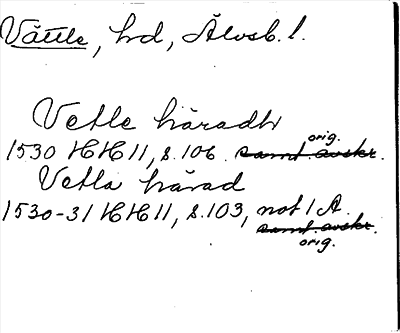 Vättle, hd, Älvsb. l.
Vetle häradh
orig.
1530 HH 11, s. 106. samt. avskr.
Vetla härad
1530-31 HH 11, s. 103, not 1 A.
samt. avskr.
orig.